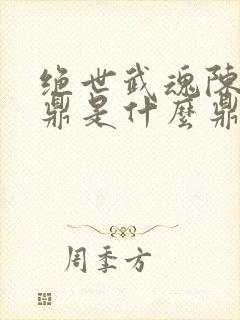 绝世武魂陈
鼎是什麽鼎
周季方